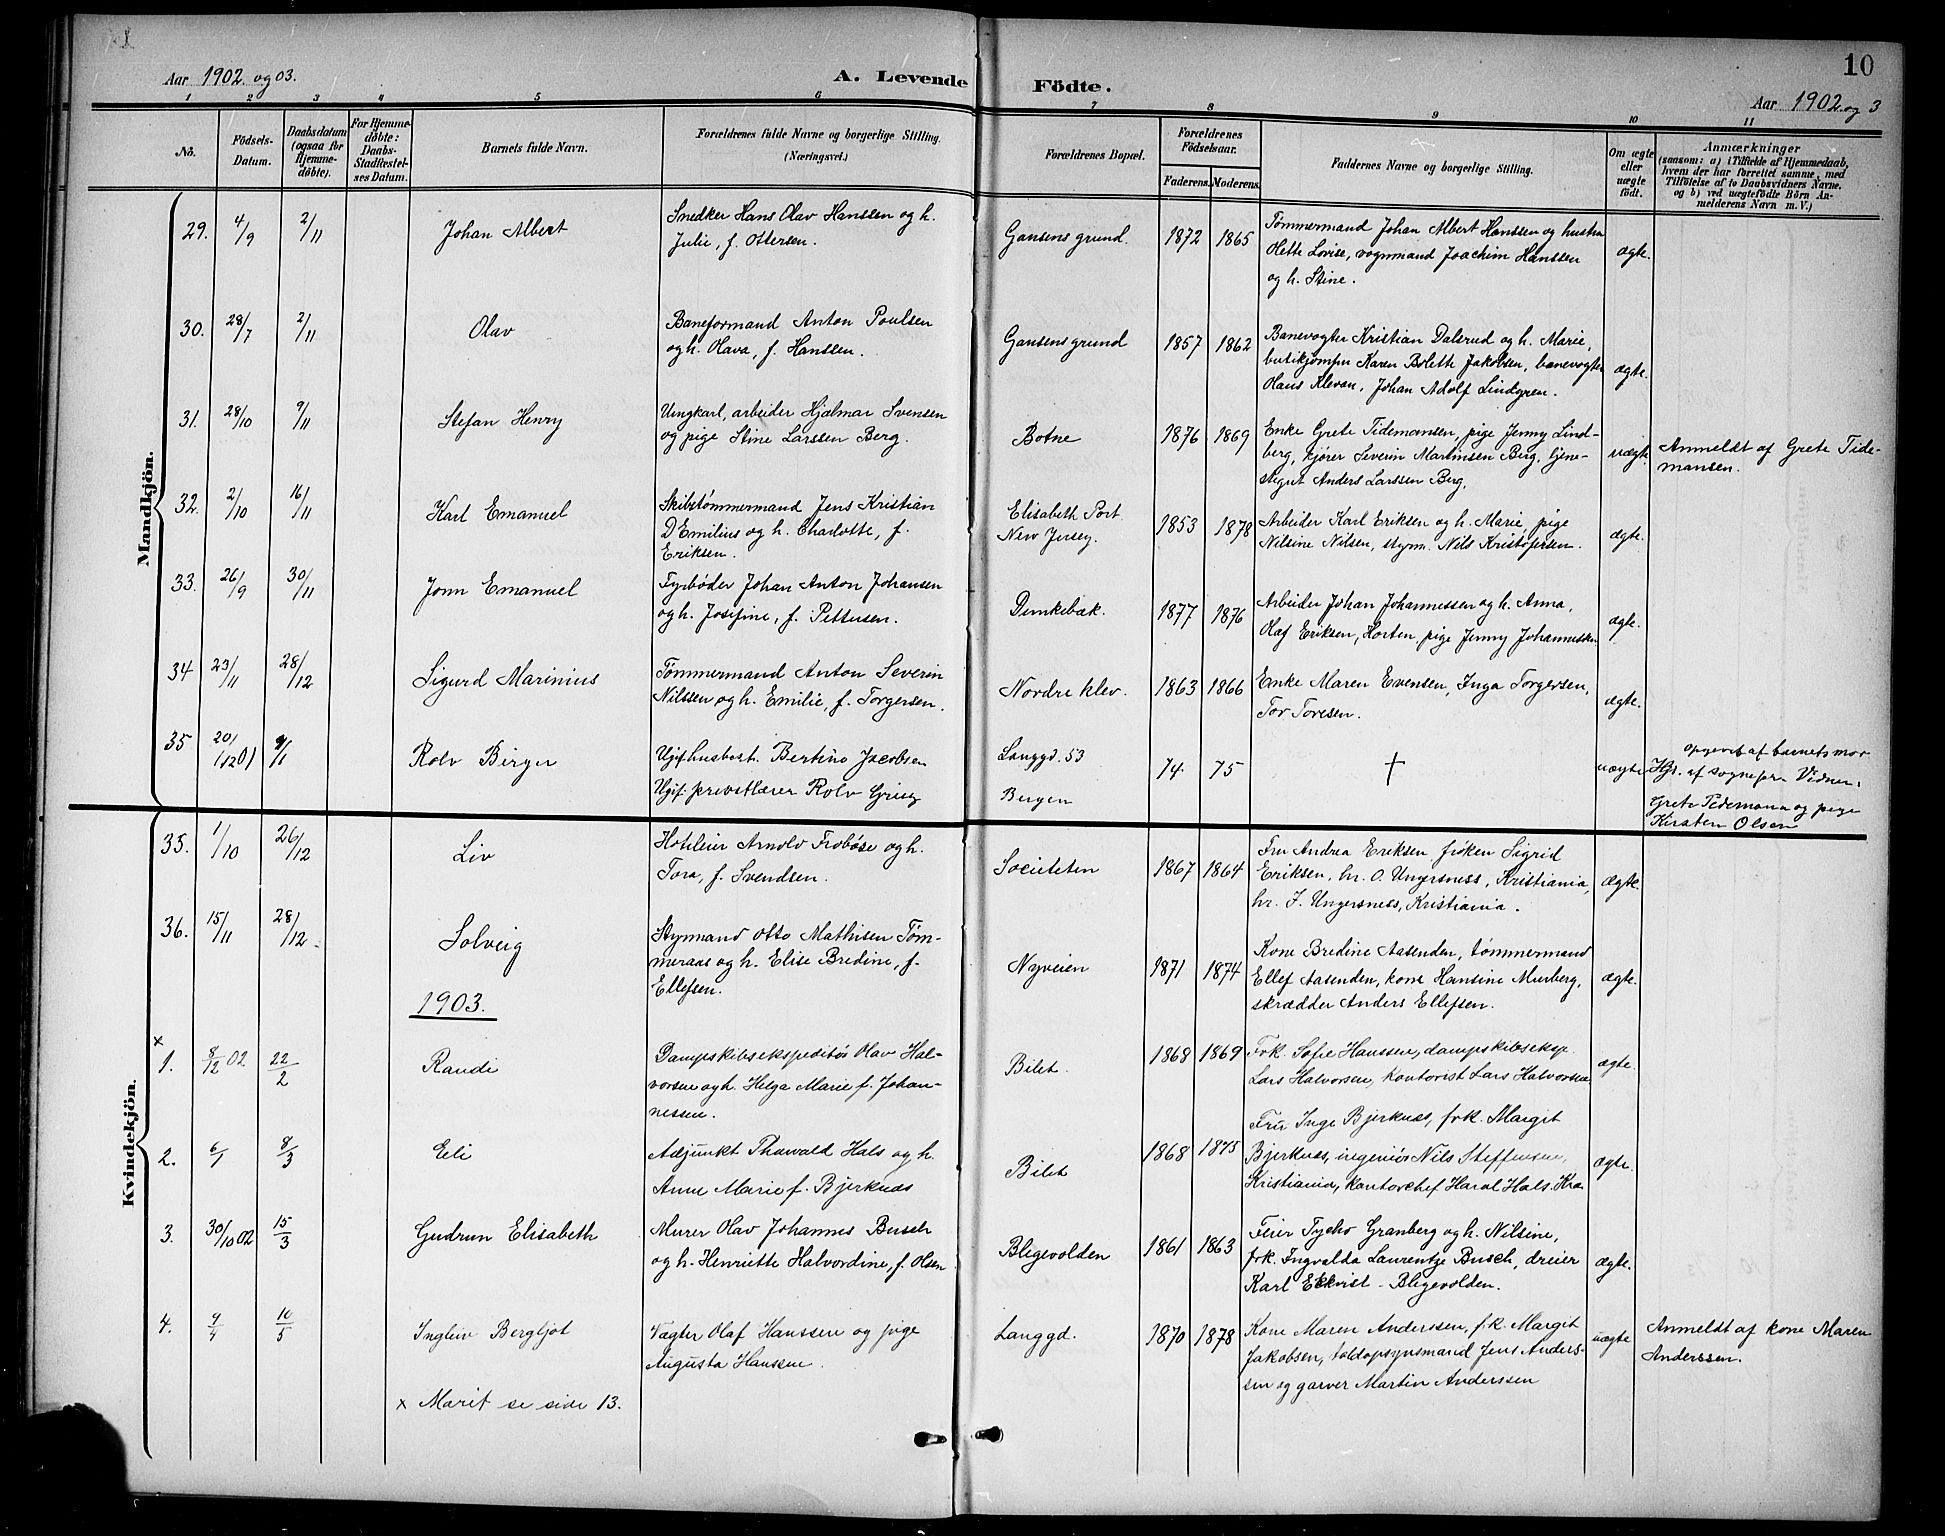 Aar 1902 og 03.
A. Levende
Födte.
10
Aar 1902 og 3
1 2 3 4 5 6 7 8 9 10 11
No.
Födsels-
Datum.
Daabsdatum
(ogsaa for
Hjemme-
döbte).
For Hjemme-
döbte:
Daabs-
Stadfæstel-
ses Datum.
Barnets fulde Navn.
Forældrenes fulde Navne og borgerlige Stilling.
(Næringsvei.)
Forældrenes Bopæl.
Forældrenes
Födselsaar.
Faderens. Moderens.
Faddernes Navne og borgerlige Stilling.
Om ægte
eller
uægte
födt.
Anmærkninger
(saasom: a) i Tilfælde af Hjemmedaab,
hvem der har forrettet samme, med
Tilföielse af to Daabsvidners Navne.
og b) ved uægtefödte Börn An-
melderens Navn m. V.)
Mandkjön.
29. 4/9 2/11 Johan Albert
Snedker Hans Olav Hanssen og h.
Julie, f. Ottersen.
Gansens grund. 1872 1865
Tømmermand Johan Albert Hanssen og hustru
Olette Lovise, vognmand Joachim Hanssen
og h. Stine.
ægte.
30. 28/7 2/11 Olav
Baneformand Anton Poulsen
og h. Olava, f. Hanssen.
Gansens grund 1857 1862
Banevogter Kristian Dalsrud og h. Marie,
butikjomfru Karen Bolette Jakobsen, banevogter
Hans Klevan, Johan Adolf Lindgren.
ægte.
31. 28/10 9/11 Stefan Henry
Ungkarl, arbeider Hjalmar Svensen
og pige Stine Larssen Berg.
Botne 1876 1869
Enke Grete Tidemansen, pige Jenny Lind-
berg, kjører Severin Martinsen Berg, tjene-
stegut Anders Larssen Berg.
uægte
Anmeldt af Grete Tide-
mansen.
32. 2/10 16/11 Karl Emanuel
Skibstømmermand Jens Kristian
D'Emilius og h. Charlotte, f.
Eriksen.
Elisabeth Port
New Jersey. 1853 1878
Arbeider Karl Eriksen og h. Marie, pige
Nilsine Nilsen, styrm. Nils Kristofersen.
ægte.
33. 26/9 30/11 Jonn Emanuel
Fyrbøder Johan Anton Johansen
og h. Josefine, f. Pettersen.
Demkebæk. 1877 1876
Arbeider Johan Johannessen og h. Anna,
Olaf Eriksen, Horten, pige Jenny Johannessen
ægte.
34 23/11 28/12 Sigurd Marinius
Tømmermand Anton Severin
Nilssen og h. Emilie, f. Torgersen.
Nordre klev. 1863 1866
Enke Maren Evensen, Inga Torgersen,
Tor Toresen.
ægte.
35 20/12 01 Rolv Birger
Ugift husbest. Bertine Jacobsen
Ugift privatlærer Rolv Grieg
Langgd. 53
Bergen
74. 75 † uægte
opgivet af barnets mor
Hjd. af sognepr. Vidnes:
Grete Tidemann og pige
Kirsten Olsen
Kvindekjön.
35. 1/10 26/12 Liv
Hotileier Arnold Frobøse og h.
Tora, f. Svendsen.
Societeten 1867 1864
Fru Andrea Eriksen, frøken Sigrid
Eriksen, hr. O. Ungersness, Kristiania,
hr. J. Ungersness, Kristiania.
ægte.
36. 15/11 28/12 Solveig
Styrmand Otto Mathisen Tøm-
meraas og h. Elise Bredine, f.
Ellefsen.
Nyveien 1871 1874
Kone Bredine Aasenden, tømmermand
Ellef Aasenden, kone Hansine Murberg,
skrædder Anders Ellefsen.
ægte.
1903.
x
1. 8/12 02 22/2 Randi
Dampskibsekspeditør Olav Hal-
vorsen og h. Helga Marie f. Johan-
nessen.
Bilet. 1868 1869
Frk. Sofie Hanssen, dampskibseksp.
Lars Halvorsen, kontorist Lars Halvorsen
ægte.
2. 6/1 8/3 Eli
Adjunkt Thorvald Hals og h.
Anne Marie f. Bjerknæs
Bilet 1868 1875
Fru Inge Bjerknæs, frk. Margit
Bjerknæs, ingeniør Nils Steffensen,
Kristiania, kontorchef Haral Hals. Kra
ægte.
3. 30/10 02 15/3 Gudrun Elisabeth
Murer Olav Johannes Busch
og h. Henriette Halvordine, f. Olsen
Bligevolden 1861 1863
Feier Tycho Granberg og h. Nilsine,
frk. Ingvalda Laurentze Busch, dreier
Karl Eckvist - Bligevolden.
ægte.
4. 9/4 10/5 Ingleiv Bergljot
Vægter Olaf Hanssen og pige
Augusta Hanssen.
Langgd. 1870 1878
Kone Maren Anderssen, frk. Margit
Jakobsen, toldopsynsmand Jens Anders-
sen og garver Martin Anderssen
uægte
Anmeldt af kone Maren
Anderssen.
x Marit se side 13.